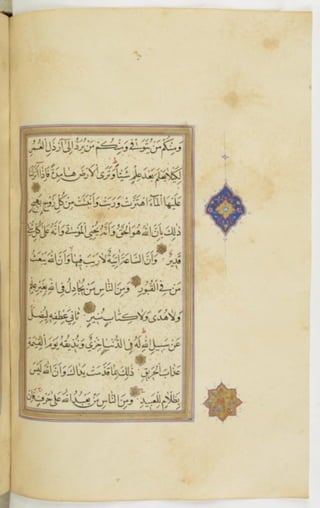 وَمِنكُم مَن يُتَوَفّٰى وَمِنكُم مَن يُرَدُّ اِلٰى اَرذَلِ العُمُرِ
لِكَيلَا يَعلَمَ مِن بَعدِ عِلمٍ شَيئًا وَتَرَى الاَرضَ هَامِدَةً فَاِذَا اَنزَلنَا
عَلَيهَا المَآءَ اهتَزَّت وَرَبَت وَاَنبَتَت مِن كُلِّ زَوجٍ بَهِيجٍ
ذٰلِكَ بِاَنَّ اللهَ هُوَ الحَقُّ وَاَنَّهُ يُحيِي المَوتٰى وَاَنَّهُ عَلٰى كُلِّ شَيءٍ
قَدِيرٌ وَاَنَّ السَّاعَةَ اٰتِيَةٌ لَا رَيبَ فِيهَا وَاَنَّ اللهَ يَبعَثُ
مَن فِي القُبُورِ وَمِنَ النَّاسِ مَن يُجَادِلُ فِي اللهِ بِغَيرِ عِلمٍ
وَلَا هُدًى وَلَا كِتَابٍ مُنِيرٍ ثَانِيَ عِطفِهِ لِيُضِلَّ
عَن سَبِيلِ اللهِ لَهُ فِي الدُّنيَا خِزيٌ وَنُذِيقُهُ يَومَ القِيٰمَةِ
عَذَابَ الحَرِيقِ ذٰلِكَ بِمَا قَدَّمَت يَدَاكَ وَاَنَّ اللهَ لَيسَ
بِظَلَّامٍ لِلعَبِيدِ وَمِنَ النَّاسِ مَن يَعبُدُ اللهَ عَلٰى حَرفٍ فَاِن